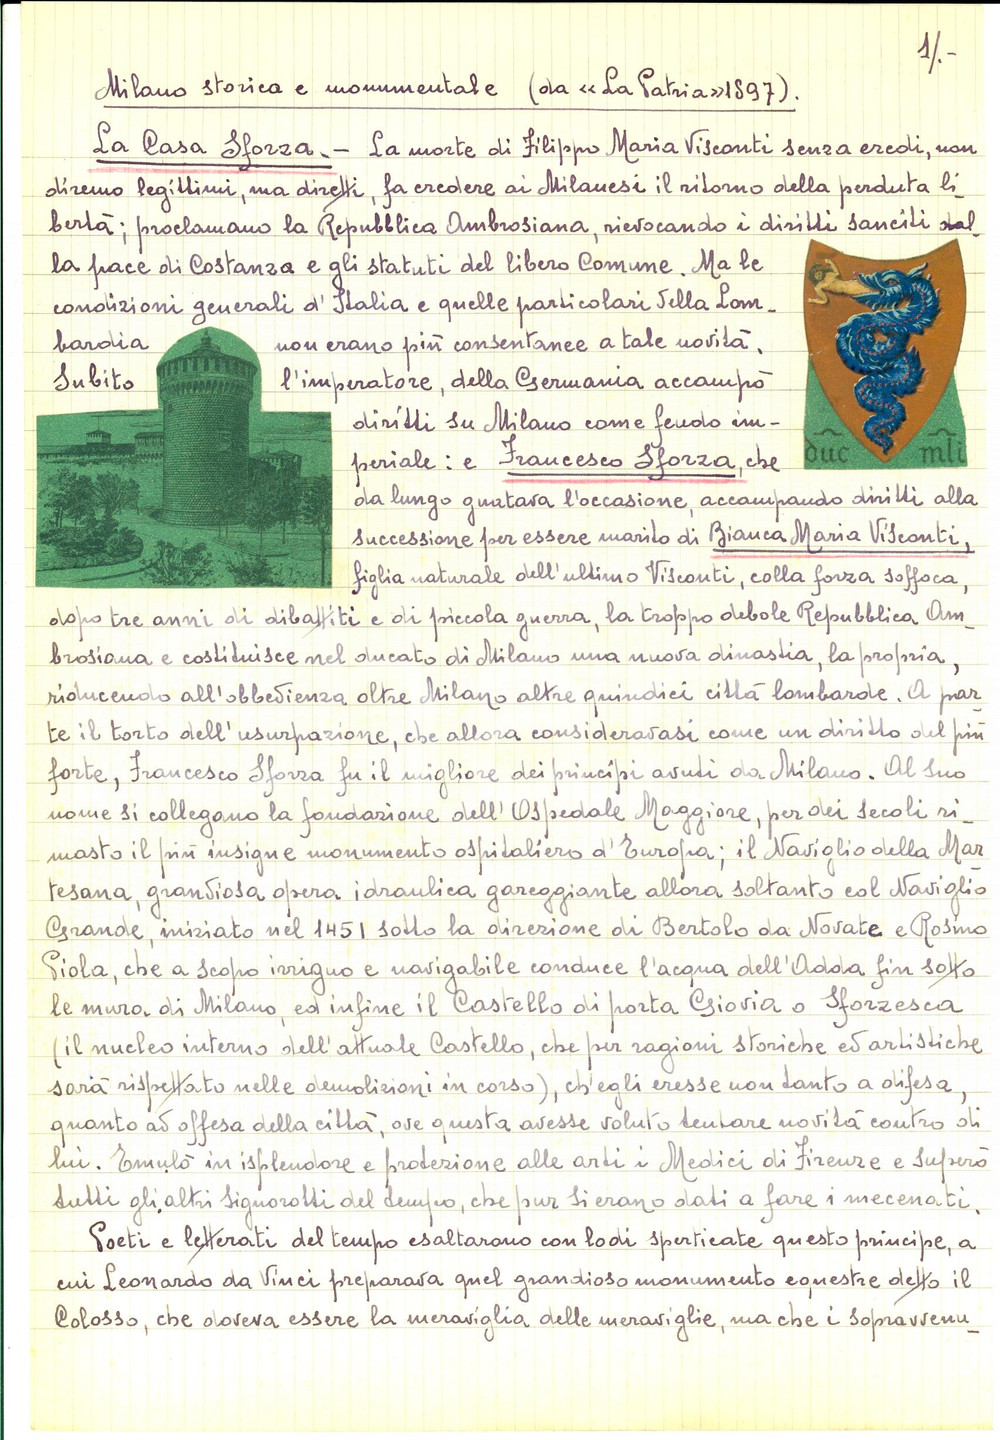 1/.-
Milano storica e monumentale (da «La Patria» 1897).
La Casa Sforza. - La morte di Filippo Maria Visconti senza eredi, non
diremo legittimi, ma diretti, fa credere ai Milanesi il ritorno della perduta li-
bertà; proclamano la Repubblica Ambrosiana, rievocando i diritti sanciti dal-
la pace di Costanza e gli statuti del libero Comune. Ma le
condizioni generali d'Italia e quelle particolari della Lom-
bardia non erano più consentanee a tale novità.
Subito l'imperatore, della Germania accampò
diritti su Milano come feudo im-
periale: e Francesco Sforza, che
duc mli
da lungo guatava l'occasione, accampando diritti alla
successione per essere marito di Bianca Maria Visconti,
figlia naturale dell'ultimo Visconti, colla forza soffoca,
dopo tre anni di dibattiti e di piccola guerra, la troppo debole Repubblica Am-
brosiana e costituisce nel ducato di Milano una nuova dinastia, la propria,
riducendo all'obbedienza oltre Milano altre quindici città lombarde. A par-
te il torto dell'usurpazione, che allora consideravasi come un diritto del più
forte, Francesco Sforza fu il migliore dei principi avuti da Milano. Al suo
nome si collegano la fondazione dell'Ospedale Maggiore, per dei secoli ri-
masto il più insigne monumento ospitaliero d'Europa; il Naviglio della Mar
tesana, grandiosa opera idraulica gareggiante allora soltanto col Naviglio
Grande, iniziato nel 1451 sotto la direzione di Bertolo da Novate e Rosino
Piola, che a scopo irriguo e navigabile conduce l'acqua dell'Adda fin sotto
le mura di Milano, ed infine il Castello di porta Giovia o Sforzesca
(il nucleo interno dell'attuale Castello, che per ragioni storiche ed artistiche
sarà rispettato nelle demolizioni in corso), ch'egli eresse non tanto a difesa,
quanto ad offesa della città, ove questa avesse voluto tentare novità contro di
lui. Emulò in isplendore e protezione alle arti i Medici di Firenze e superò
tutti gli altri signorotti del tempo, che pur si erano dati a fare i mecenati.
Poeti e letterati del tempo esaltarono con lodi sperticate questo principe, a
cui Leonardo da Vinci preparava quel grandioso monumento equestre detto il
Colosso, che doveva essere la meraviglia delle meraviglie, ma che i sopravvenu-